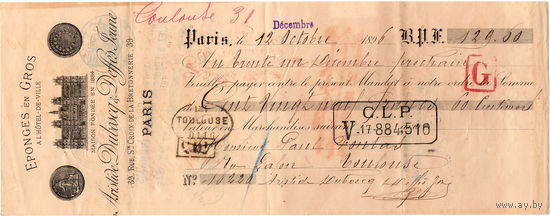 EPONGES EN GROS
A L'HÔTEL-DE-VILLE
MAISON FONDÉE EN 1884
Aristide Dubosc & Deffès Jeune
39, RUE STE CROIX DE LA BRETONNERIE, 39
PARIS
Toulouse 31
Décembre
Paris, le 12 Octobre 1896 B.P.F. 129.60
Au trente un Décembre prochain
Veuillez payer contre le présent Mandat à notre ordre la Somme
G
de cent vingt neuf francs 60 Centimes
C.L.P.
V.17884,510
TOULOUSE
Valeur en Marchandises suivant
Monsieur Paul
Toulouse
No 10228 Aristide Dubosc & Deffès Jne
www.ay.by